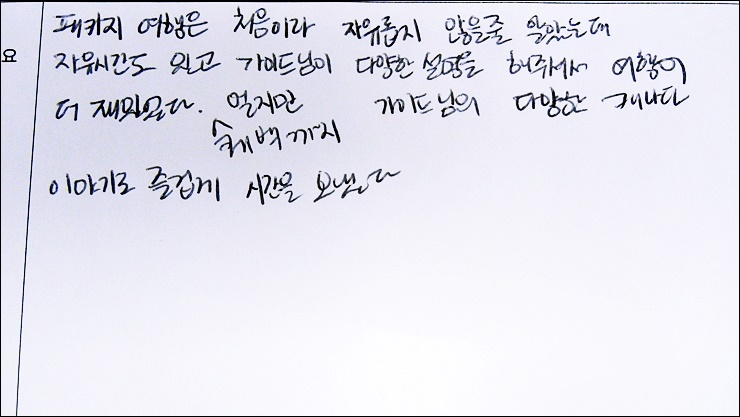 패키지 여행은 처음이라 자유롭지 않을줄 알았는데
요
자유시간도 있고 가이드님이 다양한 설명을 해주셔서 여행이
더 재미있었다. 멀지만 가이드님의 다양한 캐나다
퀘벡까지
이야기로 즐겁게 시간을 보냈다